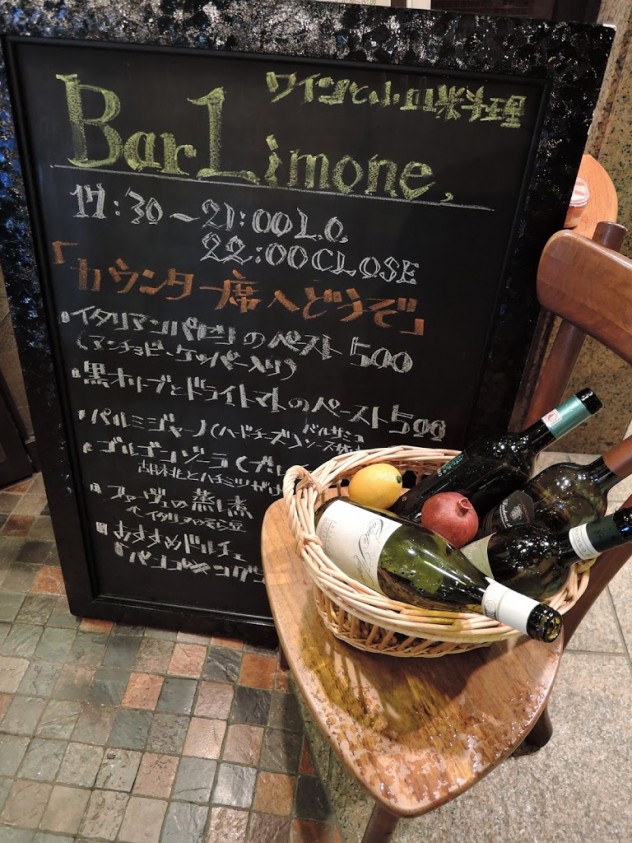 ワインと小皿料理
Bar Limone,
17:30～21:00 L.O.
22:00 CLOSE
「カウンター席へどうぞ」
イタリアンパセリのペースト 500
(アンチョビ・ケッパー入り)
黒オリーブとドライトマトのペースト 500
パルミジャーノ(ハードチーズ) バルサミコ
ソース
ゴルゴンゾーラ(ブル
とハチミツ
ファーヴェの蒸し煮
イタリアのそら豆
おすすめドルチェ